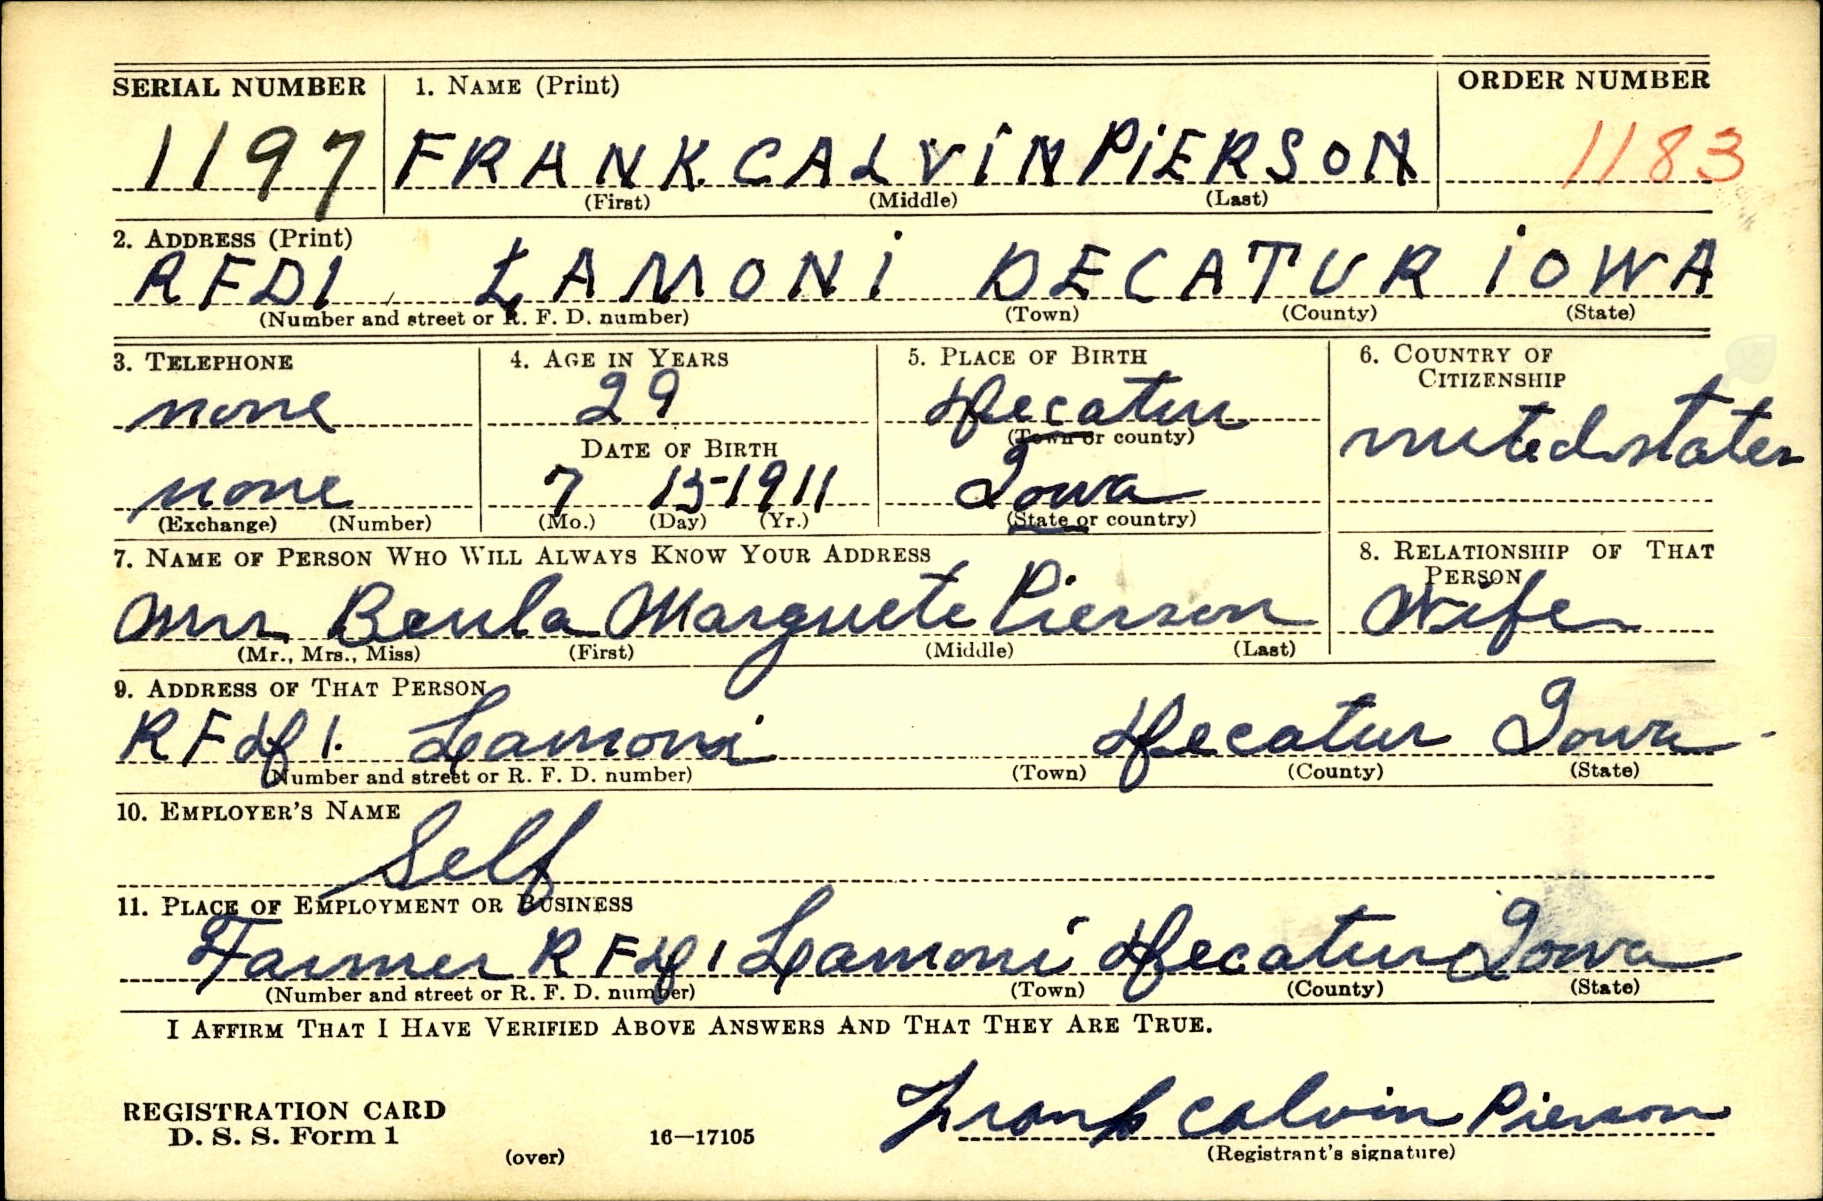 SERIAL NUMBER 1. NAME (Print) ORDER NUMBER
1197 FRANK CALVIN PIERSON 1183
(First) (Middle) (Last)
2. ADDRESS (Print)
RFD1 LAMONI DECATUR IOWA
(Number and street or R. F. D. number) (Town) (County) (State)
3. TELEPHONE 4. AGE IN YEARS 5. PLACE OF BIRTH 6. COUNTRY OF CITIZENSHIP
none 29 Decatur united states
DATE OF BIRTH (Town or county)
none 7 13-1911 Iowa
(Exchange) (Number) (Mo.) (Day) (Yr.) (State or country)
7. NAME OF PERSON WHO WILL ALWAYS KNOW YOUR ADDRESS 8. RELATIONSHIP OF THAT PERSON
Mrs Beula Marguete Pierson Wife
(Mr., Mrs., Miss) (First) (Middle) (Last)
9. ADDRESS OF THAT PERSON
RFD 1. Lamoni Decatur Iowa
(Number and street or R. F. D. number) (Town) (County) (State)
10. EMPLOYER'S NAME
Self
11. PLACE OF EMPLOYMENT OR BUSINESS
Farmer RFD 1 Lamoni Decatur Iowa
(Number and street or R. F. D. number) (Town) (County) (State)
I AFFIRM THAT I HAVE VERIFIED ABOVE ANSWERS AND THAT THEY ARE TRUE.
Frank Calvin Pierson
REGISTRATION CARD
D. S. S. Form 1 16—17105
(over) (Registrant's signature)